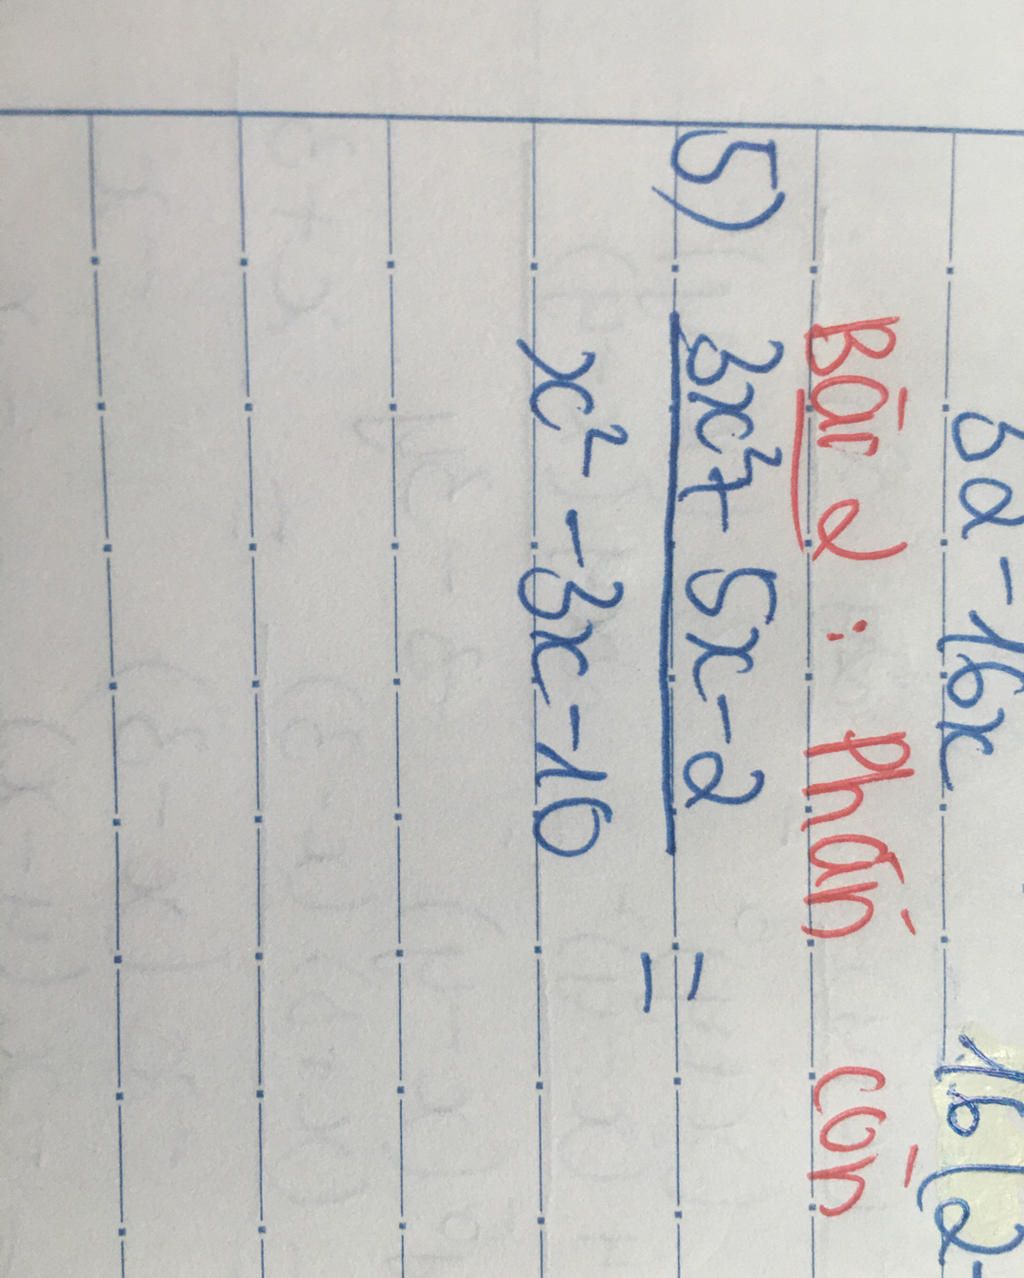 32 - 16x 16(2-
Bài 2 : Phần còn
5) 3x²+ 5x-2 =
x² -3x-10